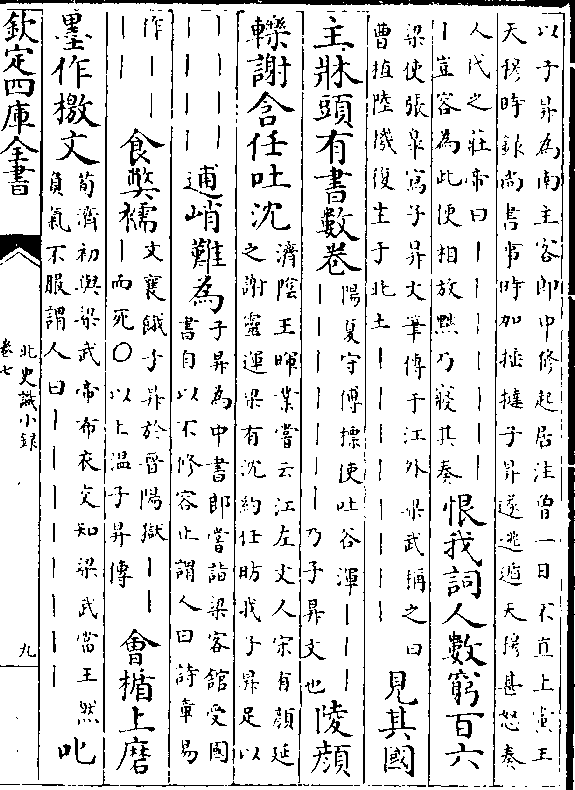 以子昇為南主客郎中修起居注曽一日不直上黨王
天穆時録尚書事時加捶撻子昇遂逃遁天穆甚怒奏
人代之莊帝曰｜｜｜｜｜｜｜｜
｜豈容為此便相放黜乃寢其奏
恨我詞人數窮百六
梁使張臯寫子昇文筆傳于江外梁武稱之曰
曹植陸機復生于北土｜｜｜｜｜｜｜｜
見其國
主牀頭有書數卷
陽夏守傅摽使吐谷渾｜｜｜
｜｜｜｜｜｜｜｜乃子昇文也
陵顔
轢謝含任吐沈
濟隂王暉業嘗云江左文人宋有顔延
之謝靈運梁有沈約任昉我子昇足以
｜｜｜｜
｜｜｜｜
逋峭難為
子昇為中書郎嘗詣梁客館受國
書自以不修容止謂人曰詩章易
作｜｜｜
｜
食弊襦
文襄餓子昇於晉陽獄｜｜
｜而死○以上温子昇傳
㑹楯上磨
墨作檄文
荀濟初與梁武帝布衣交知梁武當王然
負氣不服謂人曰｜｜｜｜｜｜｜｜
叱
欽定四庫全書
北史識小録
卷七
九